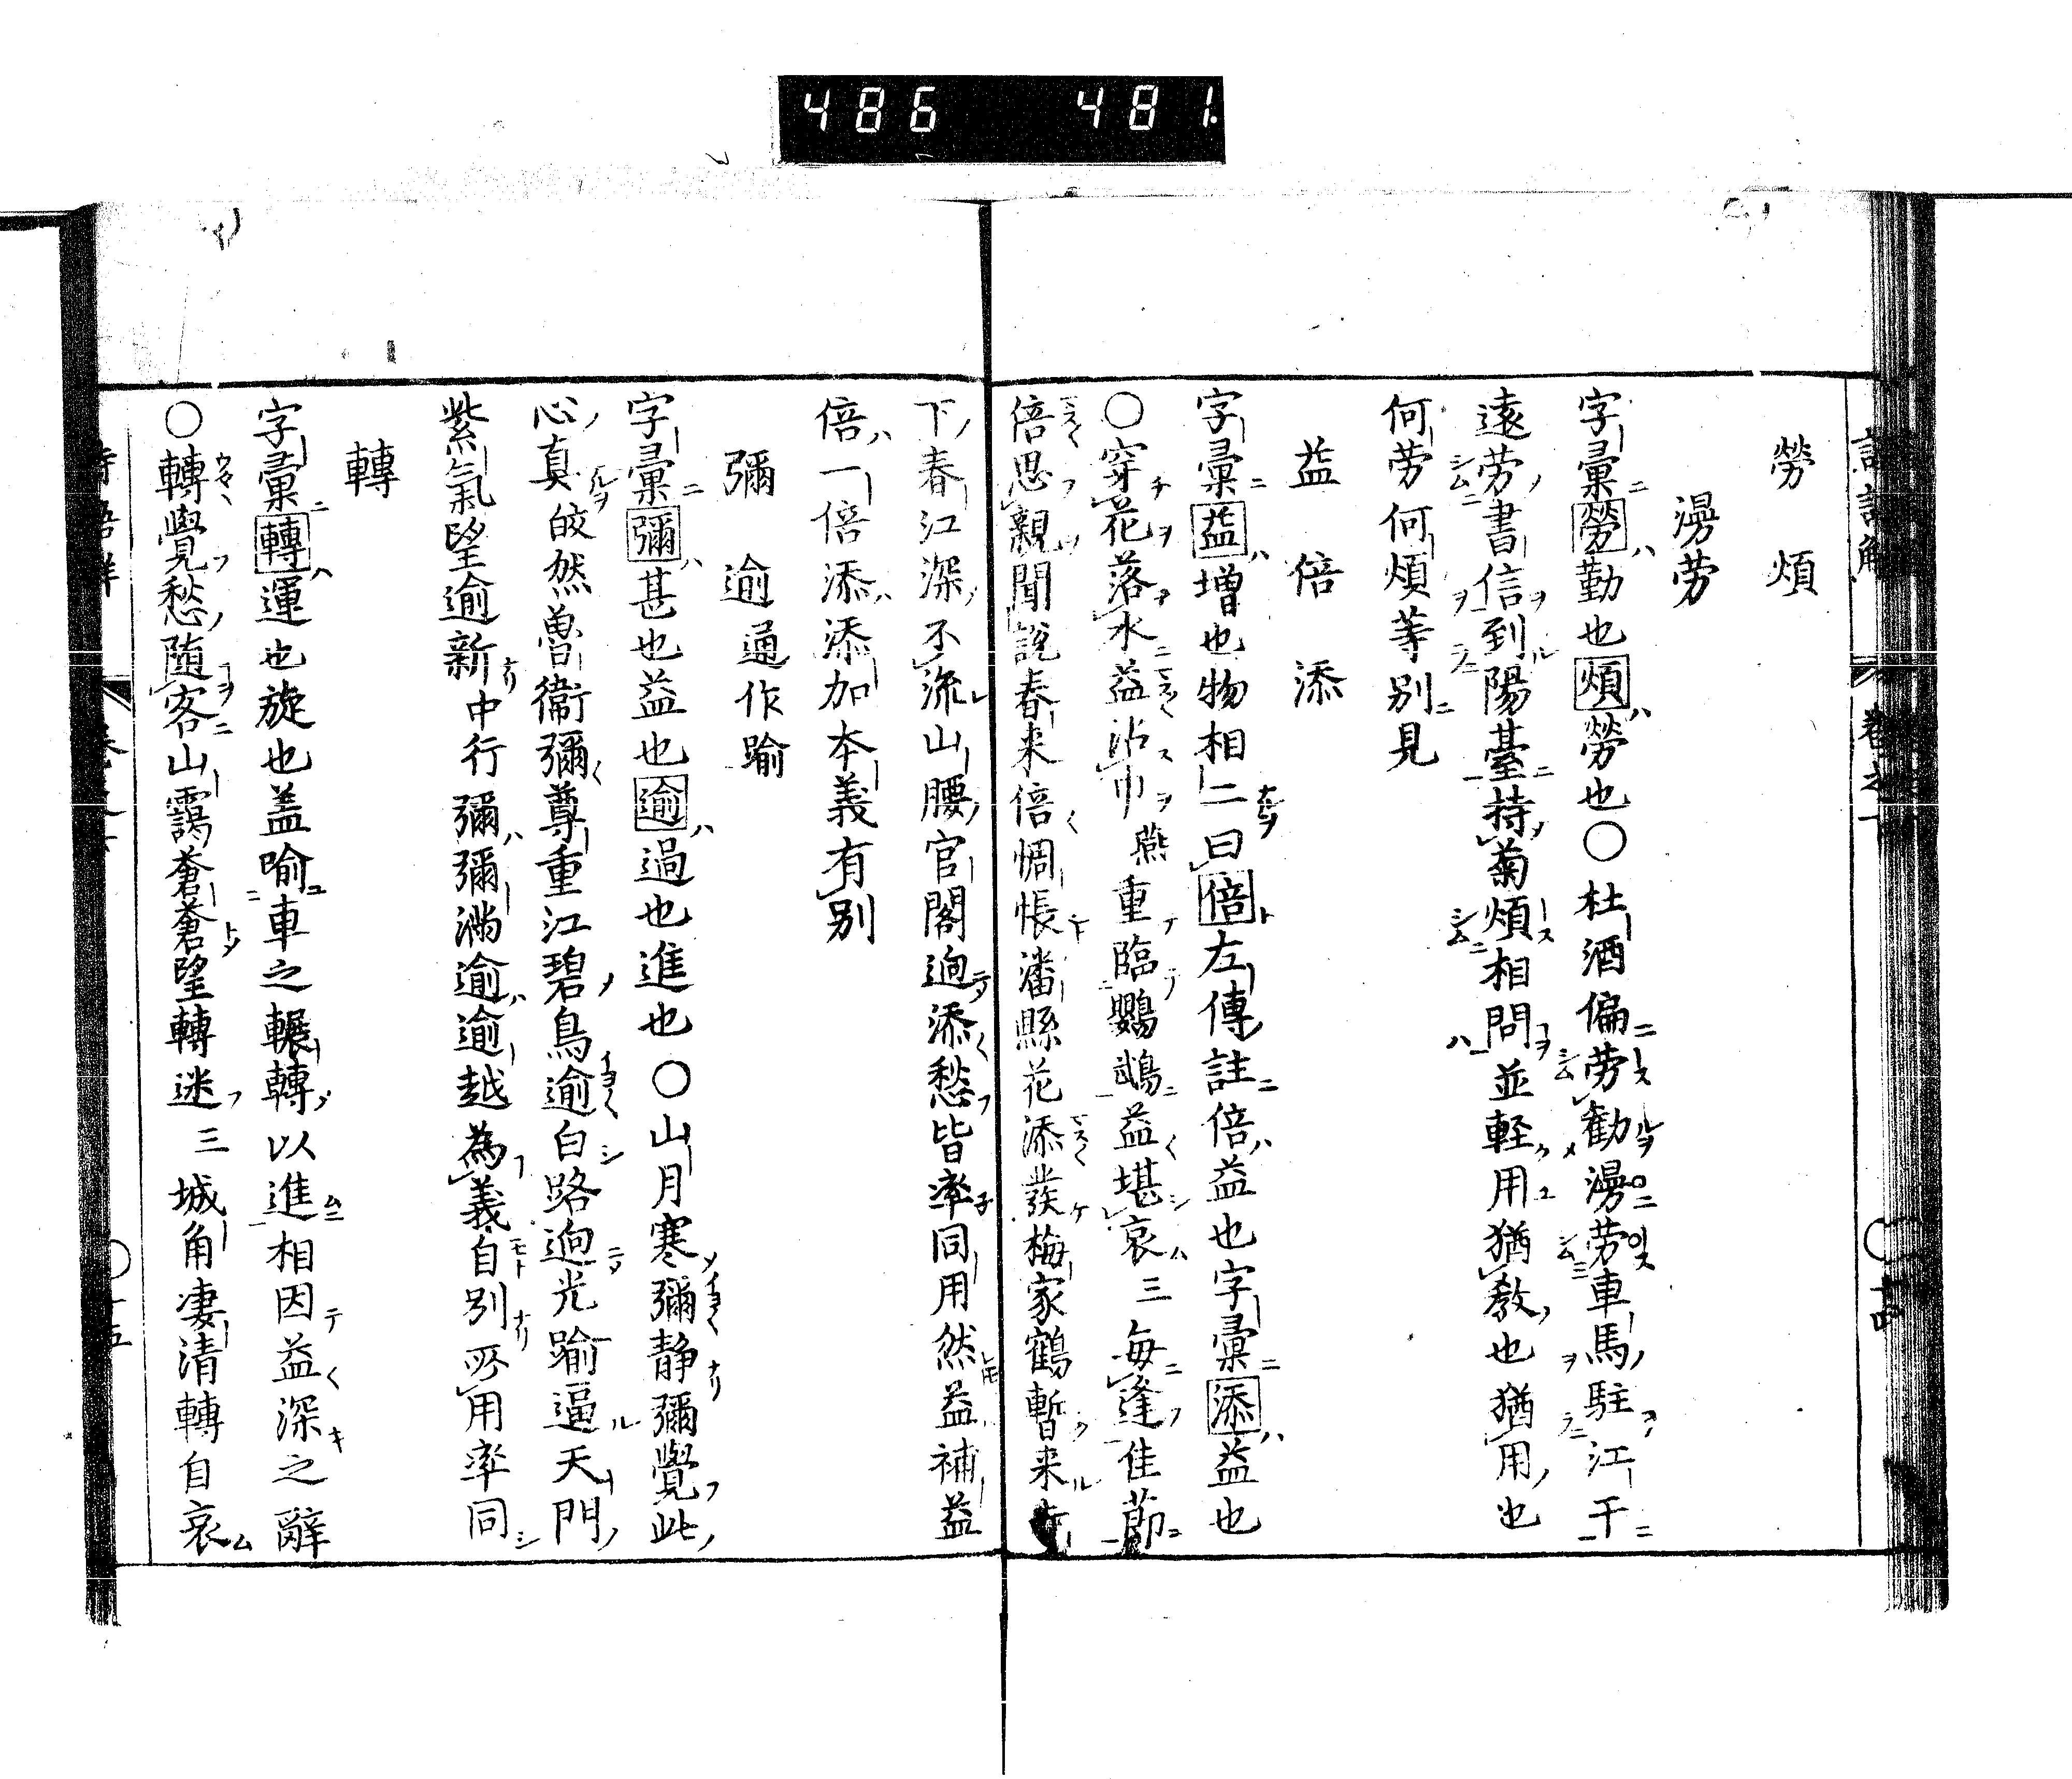 486 481.
勞 煩
漫劳
字彙ニ勞ハ勤也煩ハ勞也〇杜酒偏劳勧漫劳車馬駐江干
遠劳書信到陽臺持菊煩相問並軽用猶教也猶用也
何劳何煩等別見
益 倍 添
字彙ニ益ハ增也物相二曰倍左傳註倍益也字彙ニ添ハ益也
〇穿花落水益沾巾 燕重臨鸚鵡益堪哀 三毎逢佳節
倍思親聞説春来倍惆悵潘縣花添發梅家鶴暫来
下春江深不流山腰官閣逈添愁皆率同用然益補益
倍一倍添添加本義有別
彌 逾通作踰
字彙ニ彌ハ甚也益也逾ハ過也進也〇山月寒彌静彌覺此
心真皎然魯衞彌尊重江碧鳥逾白路逈光踰逼天門
紫氣望逾新中行彌彌満逾逾越為義自別所用率同
轉
字彙ニ轉ハ運也旋也盖喻車之輾轉以進相因益深之辭
〇轉覺愁随客山靄蒼蒼望轉迷 三城角凄清轉自哀